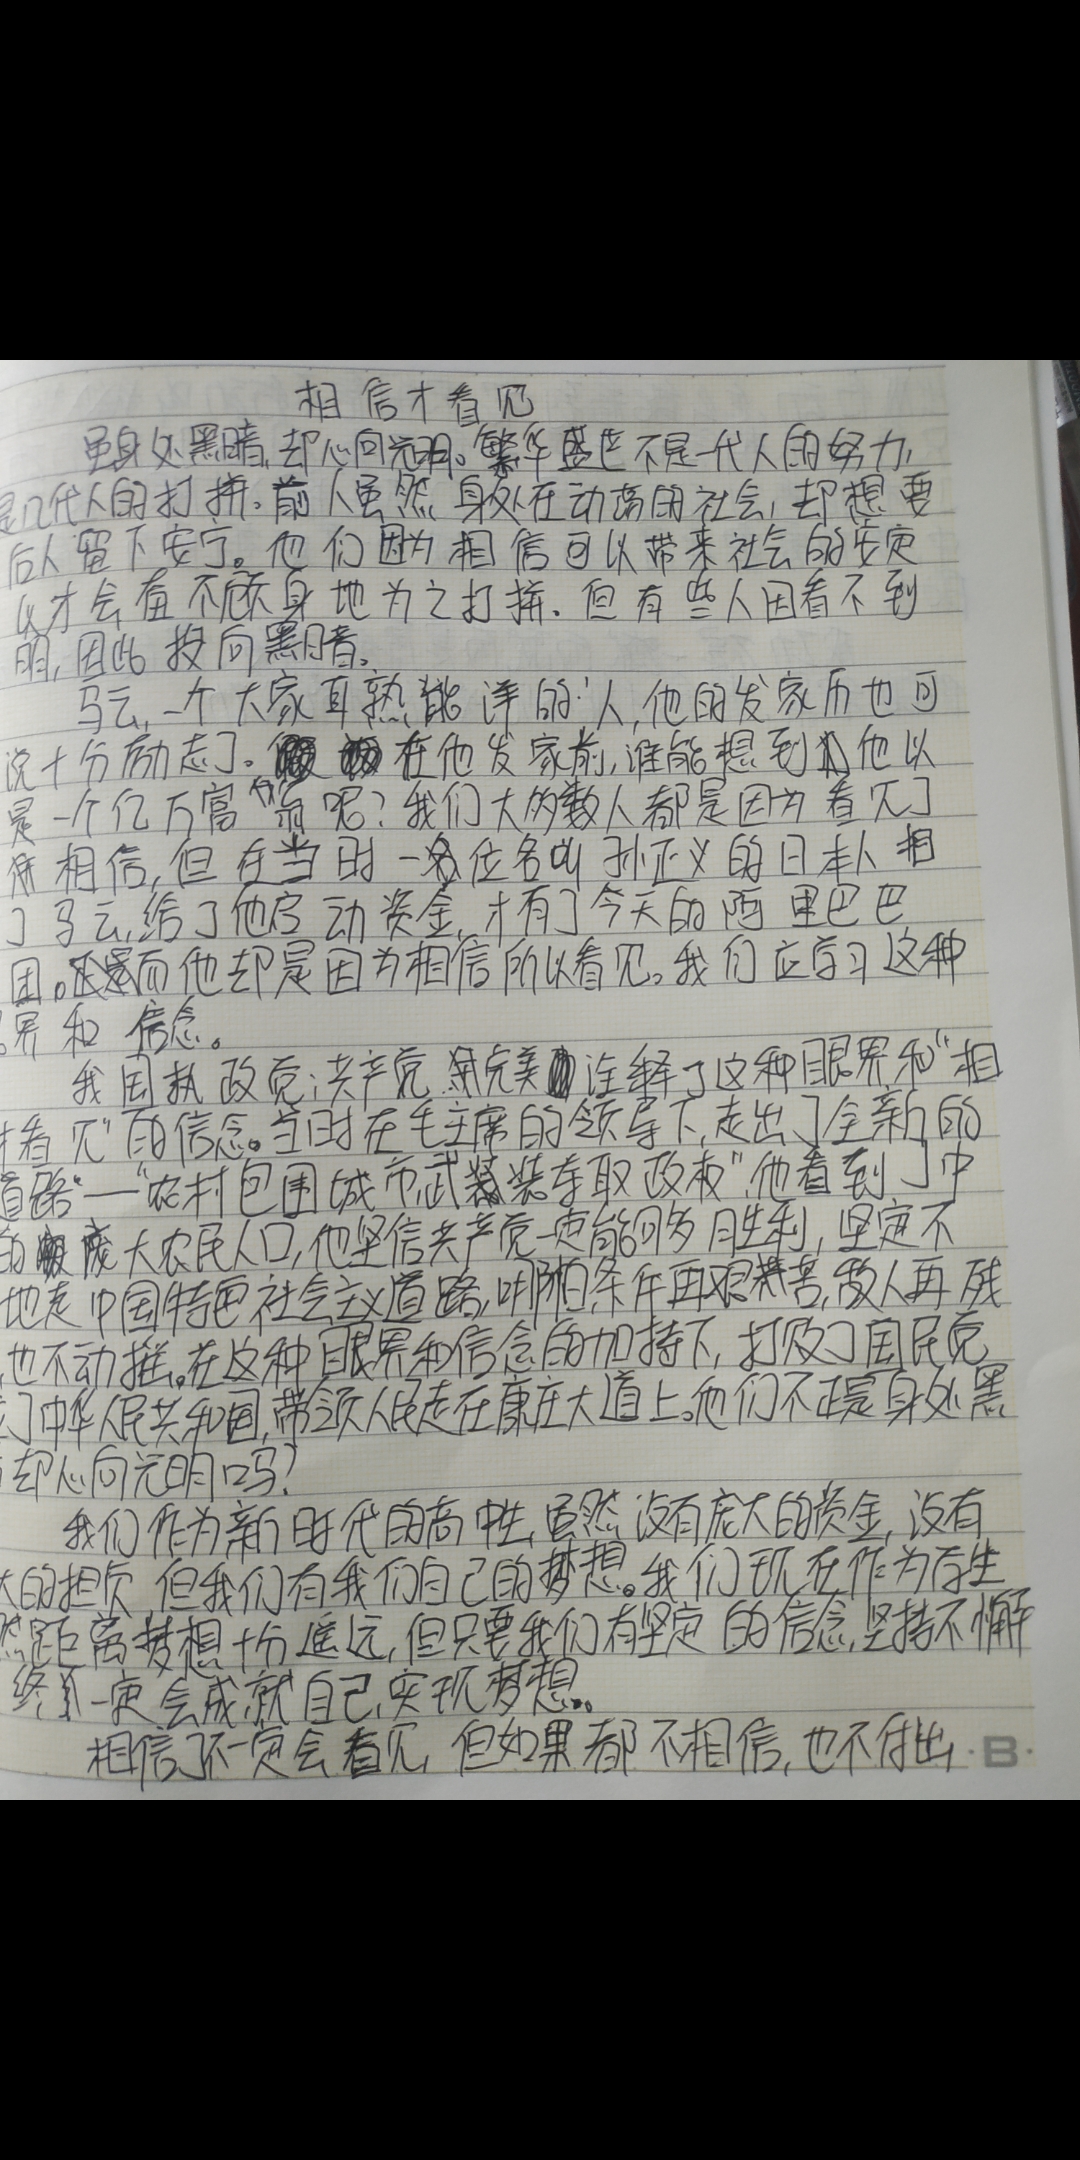 相信才看见
虽身处黑暗,却心向光明。繁华盛世不是一代人的努力,
是几代人的打拼。前人虽然身处在动荡的社会,却想要
后人留下安宁。他们因为相信可以带来社会的安定
以才会奋不顾身地为之打拼。但有些人因看不到
明,因此投向黑暗。
马云,一个大家耳熟能详的人,他的发家历也可
说十分励志了。在他发家前,谁能想到他以
是一个亿万富翁呢?我们大多数人都是因为看见了
相信,但在当时一位名叫孙正义的日本人相
了马云,给了他启动资金,才有了今天的阿里巴巴
团。而他却是因为相信所以看见。我们应学习这种
界和信念。
我国执政党:共产党完美诠释了这种眼界和“相
才看见”的信念。当时在毛主席的领导下,走出了全新的
道路“—“农村包围城市,武装夺取政权”,他看到了中
的庞大农民人口,他坚信共产党一定能够胜利,坚定不
地走中国特色社会主义道路,哪怕条件再艰苦,敌人再残
,也不动摇。在这种眼界和信念的加持下,打败了国民党
立了中华人民共和国,带领人民走在康庄大道上。他们不正是身处黑
却心向光明吗?
我们作为新时代的高中生,虽然没有庞大的资金,没有
大的担负,但我们有我们自己的梦想。我们现在作为学生
然距离梦想十分遥远,但只要我们有坚定的信念,坚持不懈
终一定会成就自己,实现梦想。
相信了不一定会看见,但如果都不相信,也不付出
·B·